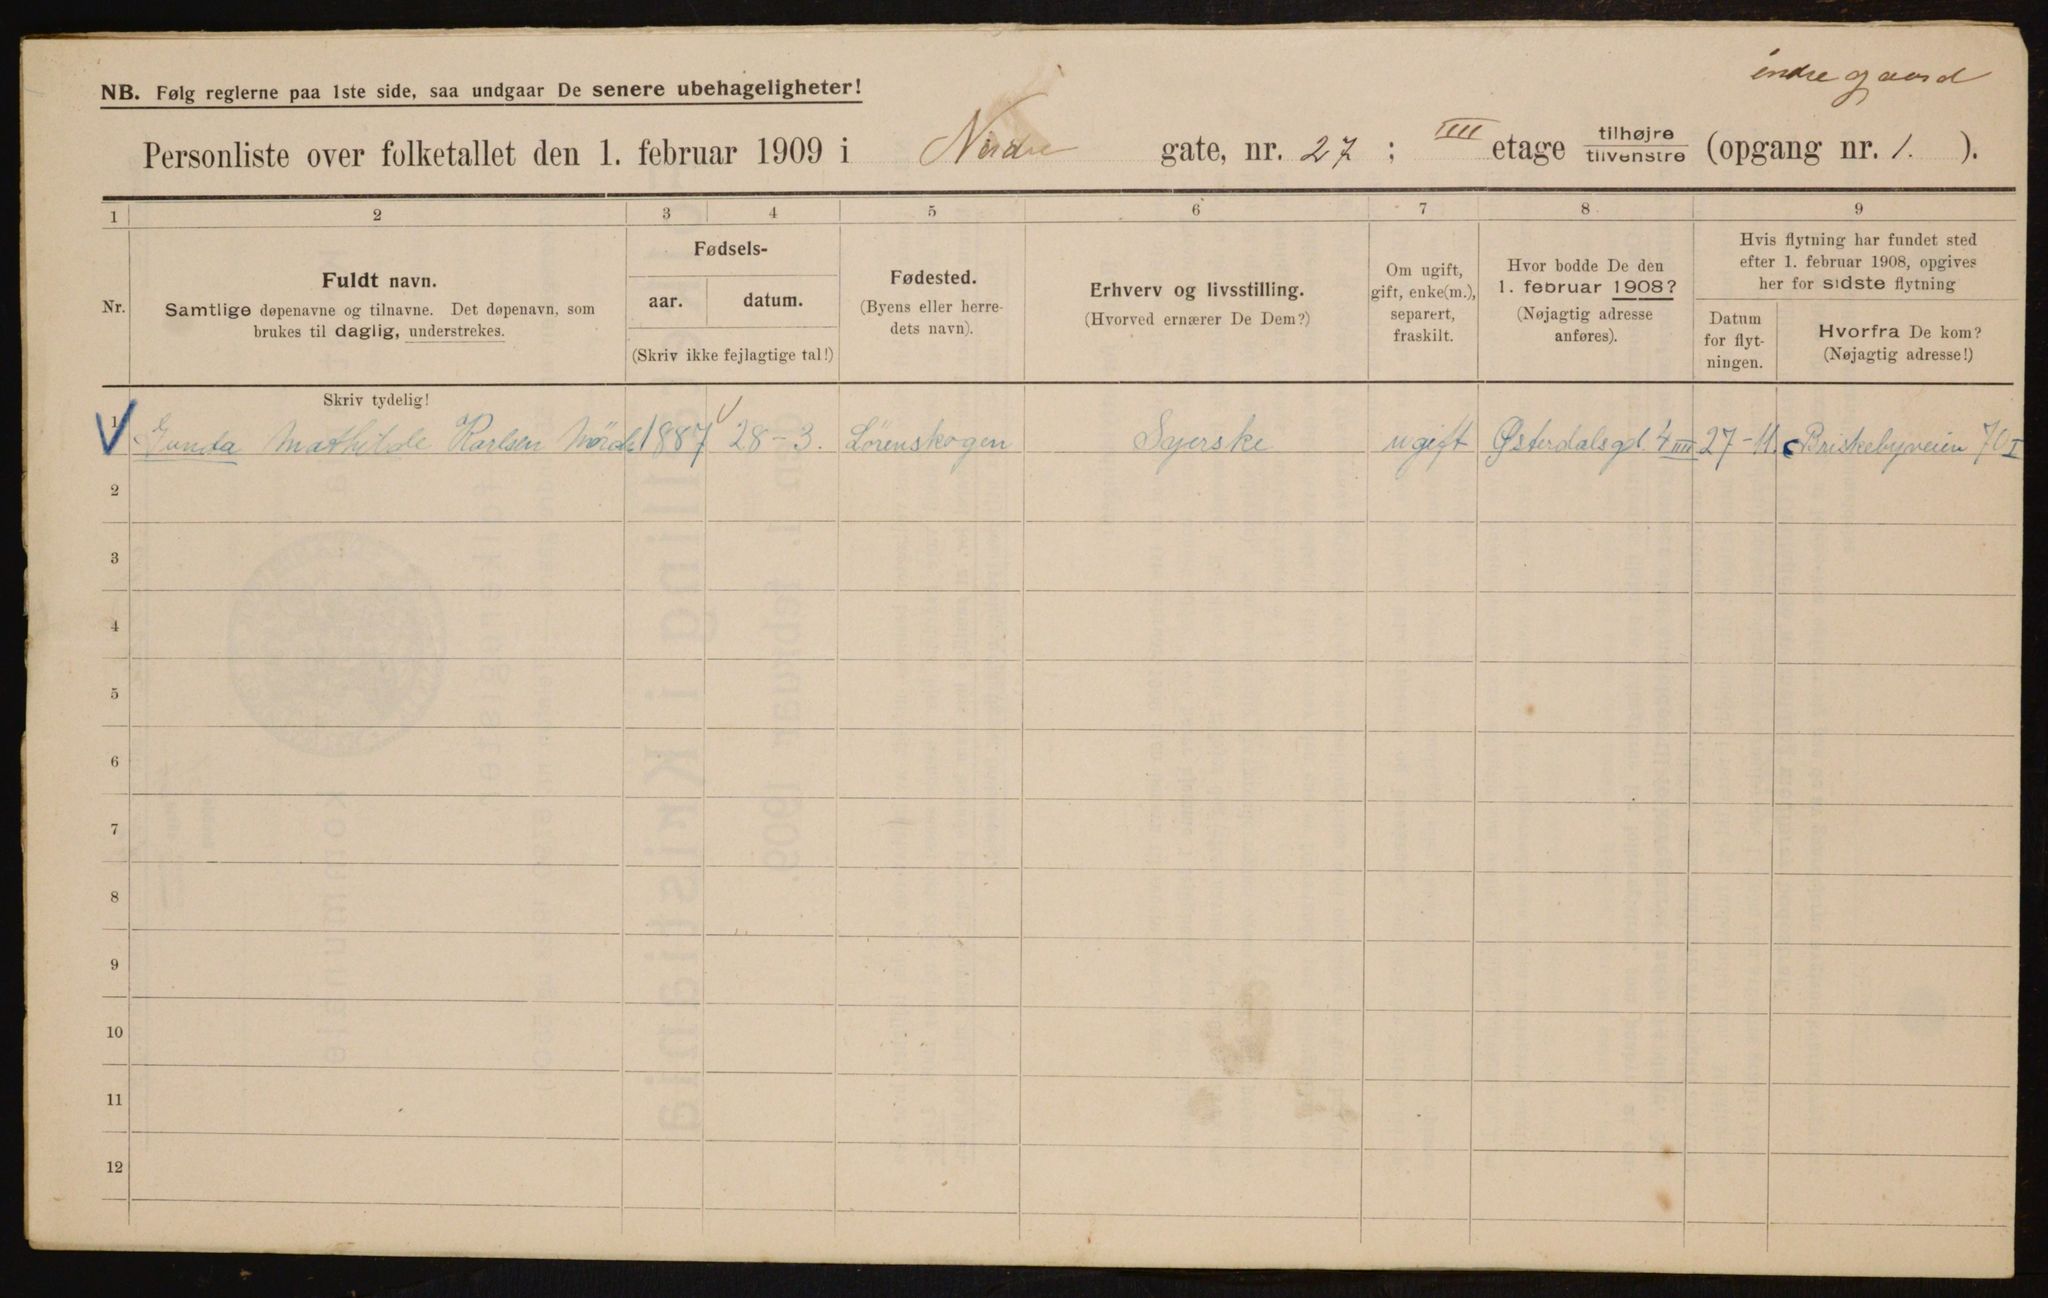 indregaard
NB. Følg reglerne paa 1ste side, saa undgaar De senere ubehageligheter!
Personliste over folketallet den 1. februar 1909 i Nordre gate, nr. 27 ; IIII etage tilhøjre/tilvenstre (opgang nr. 1. ).
1 2 3 4 5 6 7 8 9
Nr.
Fuldt navn.
Samtlige døpenavne og tilnavne. Det døpenavn, som
brukes til daglig, understrekes.
Fødsels-
aar. datum.
(Skriv ikke fejlagtige tal!)
Fødested.
(Byens eller herre-
dets navn).
Erhverv og livsstilling.
(Hvorved ernærer De Dem?)
Om ugift,
gift, enke(m.),
separert,
fraskilt.
Hvor bodde De den
1. februar 1908?
(Nøjagtig adresse
anføres).
Hvis flytning har fundet sted
efter 1. februar 1908, opgives
her for sidste flytning
Datum
for flyt-
ningen.
Hvorfra De kom?
(Nøjagtig adresse!)
Skriv tydelig!
1 Gunda Mathilde Karlsen 1887 28-3. Lørenskogen Syerske ugift Østerdalsgd. 4 IIII 27-11. Briskebyveien 70 I
2
3
4
5
6
7
8
9
10
11
12